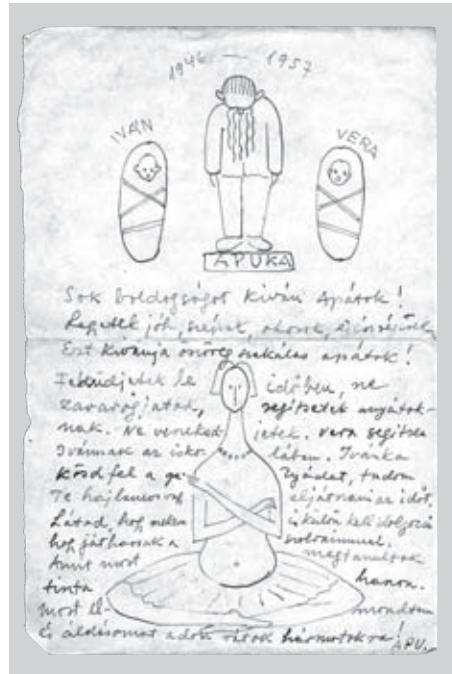 1946 — 1957
IVÁN VERA
APUKA
Sok boldogságot kíván Apátok!
Legyetek jók, szépek, okosok,
Ezt kívánja ősöreg szakálas apátok!
le időben, ne
segítsetek anyátok-
nak. Ne verekedjetek. Vera segítsen
Ivánnak az isko- lában. Ivánka
kösd fel a ga- tyádat, tudom
Te hajlamos vagy eljátszani az időt,
Látod, hogy nekem is külön kell dolgozni
hogy játhassak a
Amit most megtanultok
tinta
most el- mondtam
és áldásomat adom rátok hármotokra!
APU.